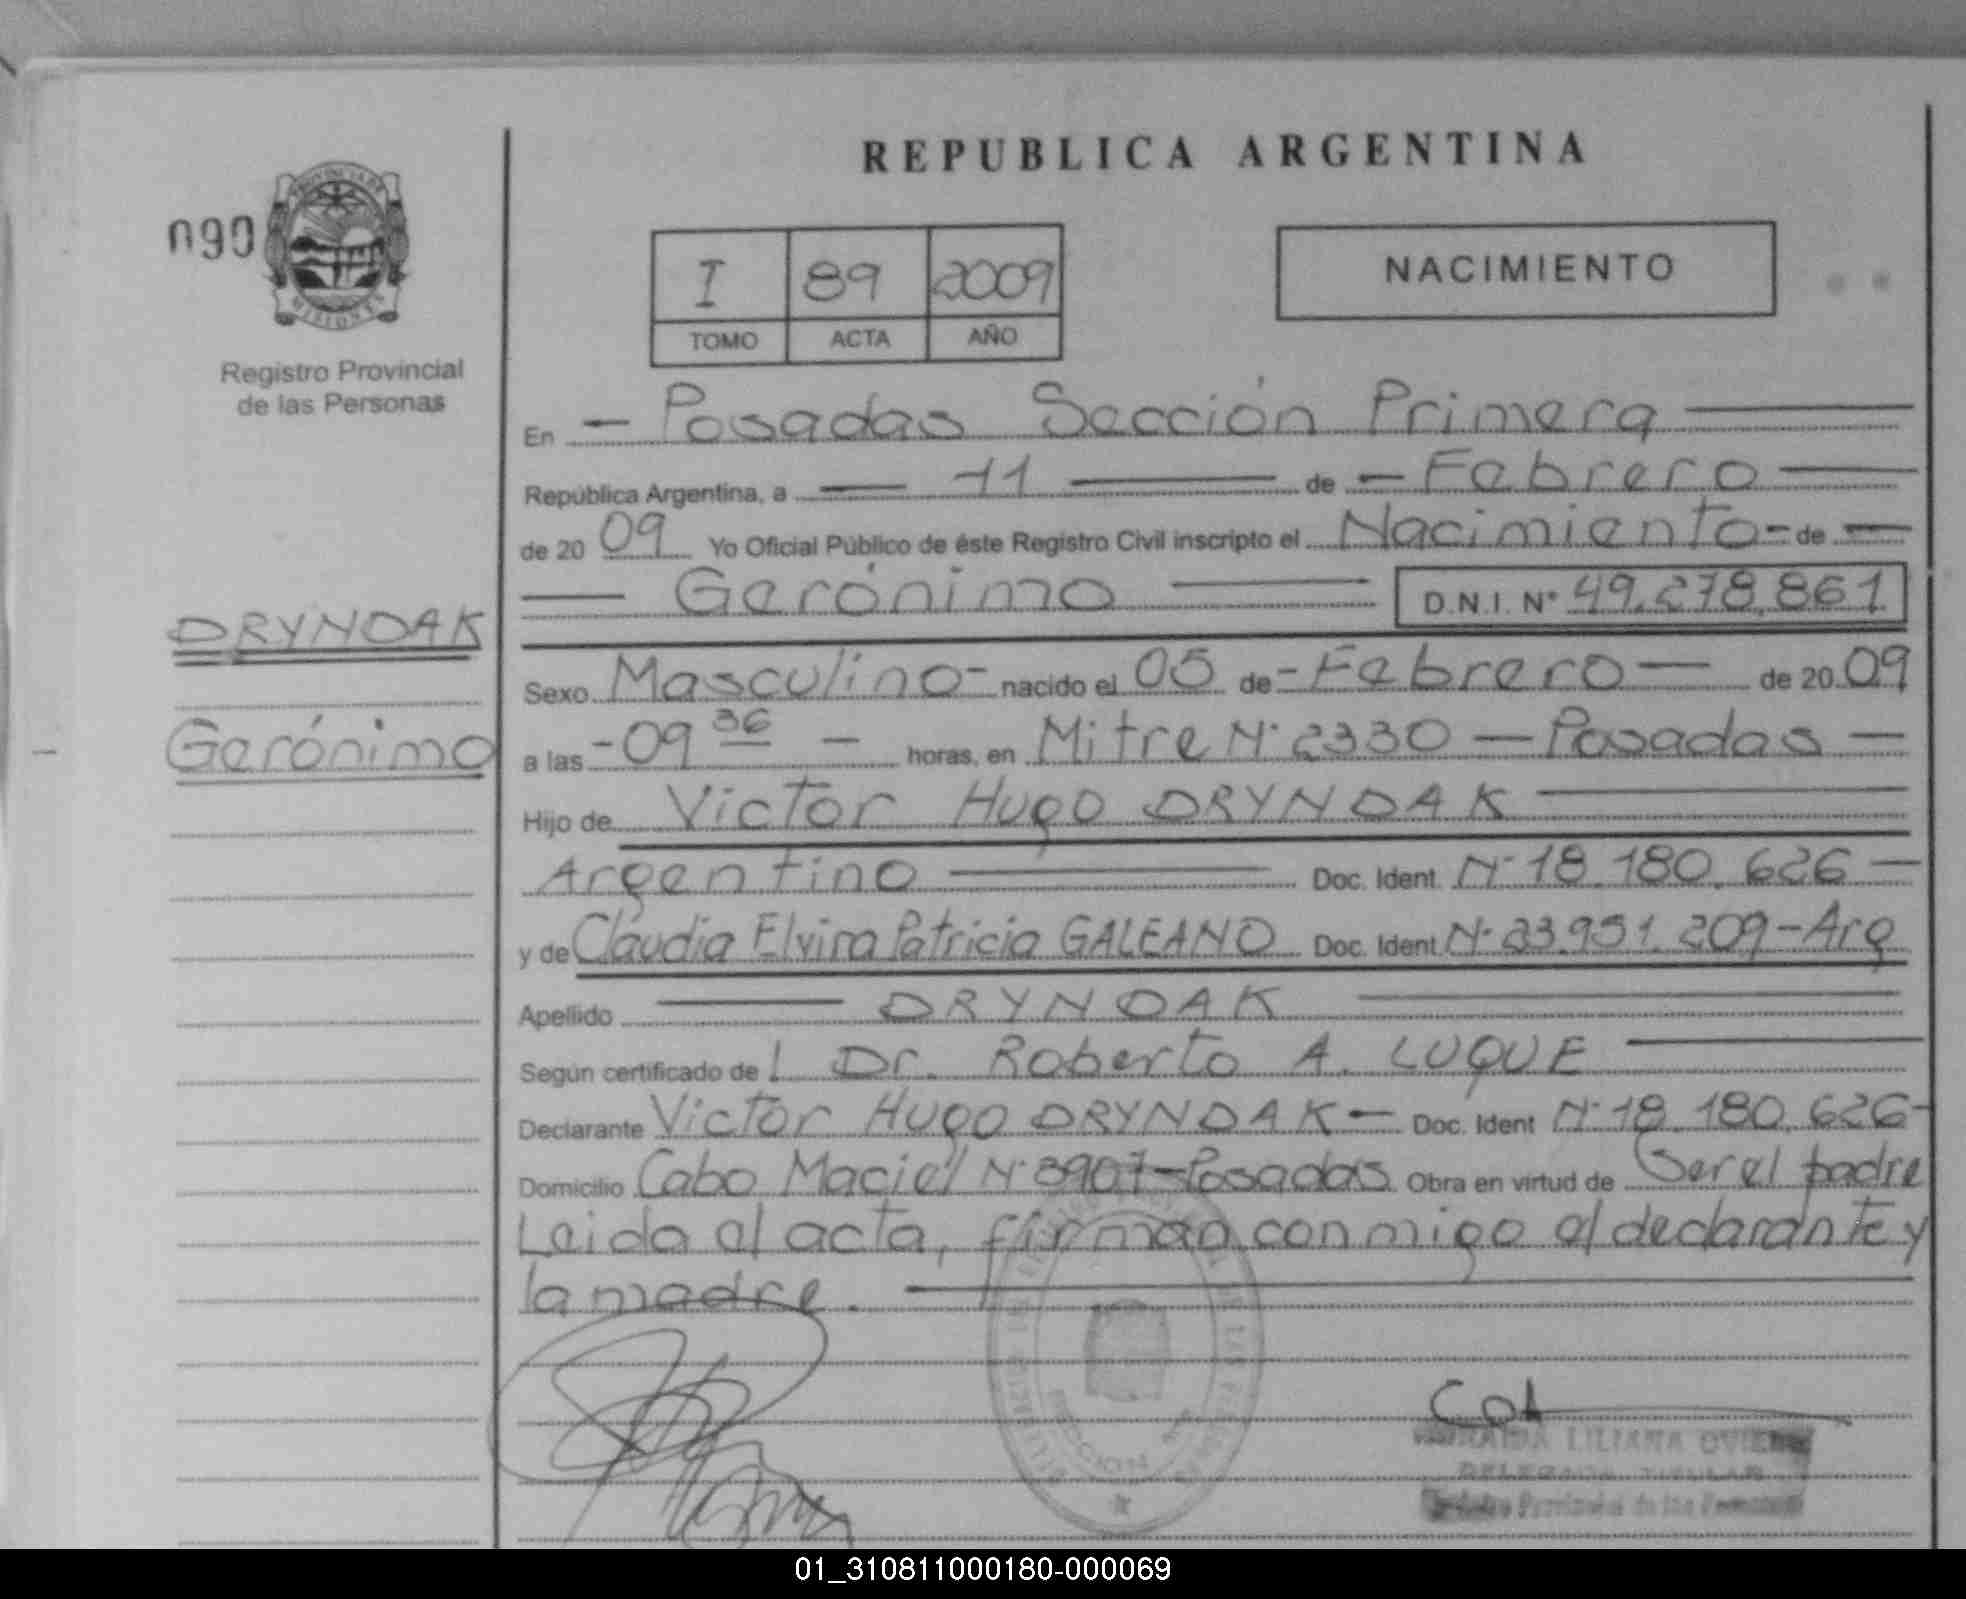 REPUBLICA ARGENTINA
090
PROVINCIA DE
MISIONES
Registro Provincial
de las Personas
I 89 2009
TOMO ACTA AÑO
NACIMIENTO
En - Posadas Sección Primera
República Argentina, a - 11 - de - Febrero
de 20 09 Yo Oficial Público de éste Registro Civil inscripto el Nacimiento - de -
- Gerónimo - D.N.I. N° 49.278.861
DRYNDAK
Gerónimo
Sexo Masculino - nacido el 05 de - Febrero - de 20 09
a las - 09 36 - horas, en Mitre N° 2330 - Posadas -
Hijo de Victor Hugo DRYNDAK
Argentino - Doc. Ident. N° 18.180.626 -
y de Claudia Elvira Patricia GALEANO Doc. Ident. N° 23.951.209 - Arg
Apellido - DRYNDAK
Según certificado de l Dr. Roberto A. LUQUE
Declarante Victor Hugo DRYNDAK - Doc. Ident N° 18.180.626 -
Domicilio Cabo Maciel N° 3907 - Posadas Obra en virtud de Ser el padre
Leida el acta, firman conmigo el declarante y
la madre.
LILIANA
DELEGADA TITULAR
Provincial de las Personas
01_310811000180-000069